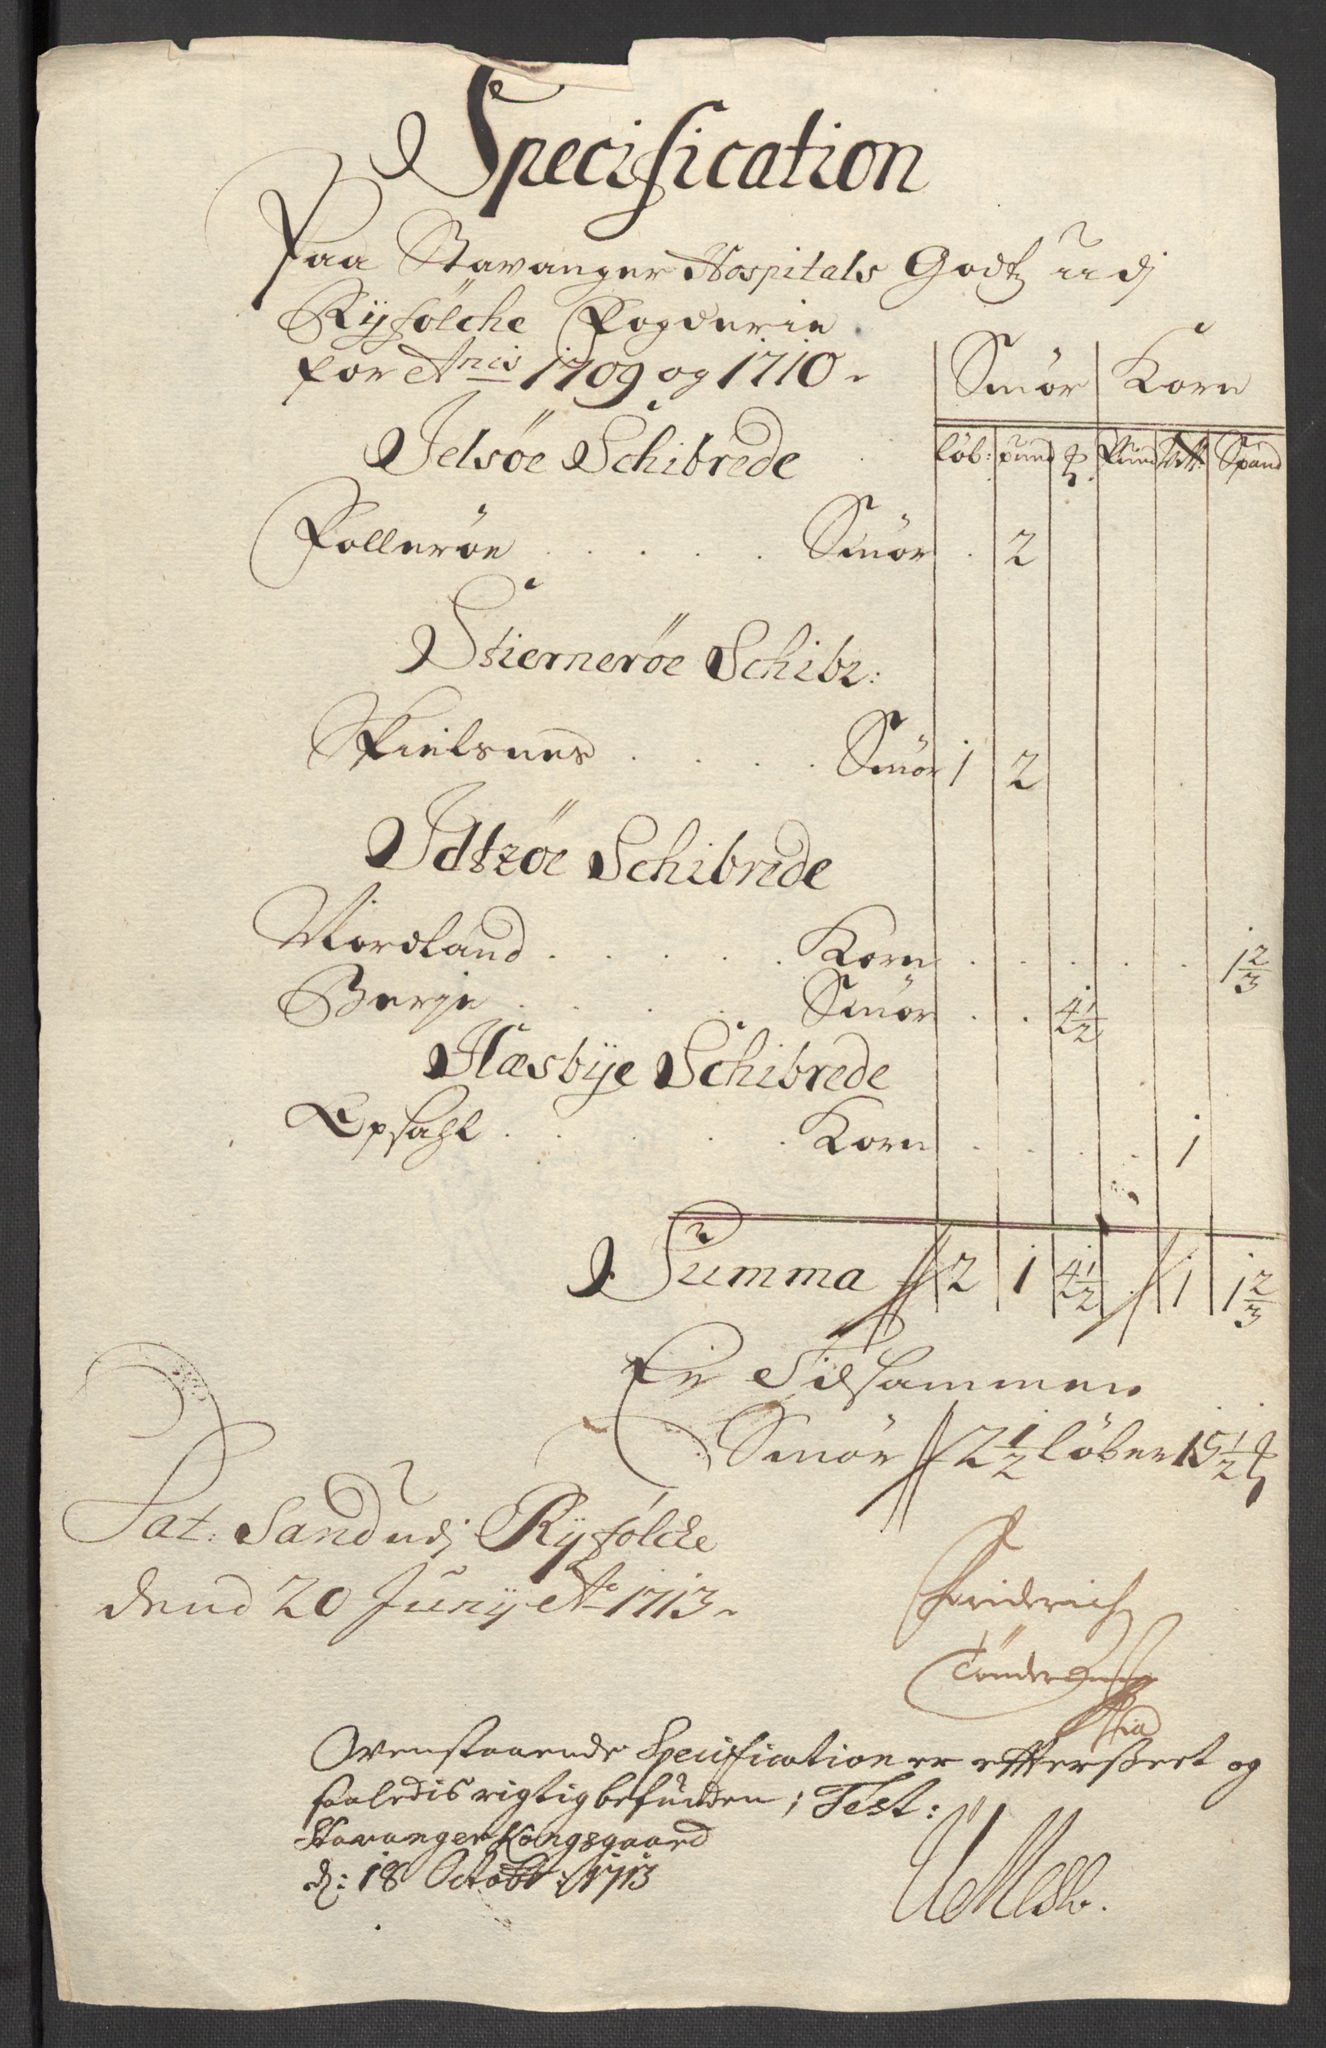 Specification
Paa Stavanger Hospitals Godtz udj
Ryfölche Fogderie
for Anis 1709 og 1710
Smör Korn
Jelsöe Schibrede
löb: pund Pund Spand
Folleröe . . . . . Smör . 2
Stierneröe Schibr:
Kielsnes . . . . Smör 1 2
Idtzöe Schibrede
Nordland . . . . . Korn . . . . . 1 2/3
Berge . . . . Smör . . 4 1/2
Hæsbye Schibrede
Epsahl . . . . . Korn . . . . 1
Summa 2 1 4 1/2 1 1 2/3
Er Tilsammen
Smör 2 1/2 löber 15 1/2 ℔
Dat: Sand udj Ryfölcke
dend 20 Junij Ao 1713
Friderich
Ovenstaaende Specification er efterseet og
saaledis rigtig befunden; Test:
Stavanger Kongsgaard
d: 18 Octobr: 1713